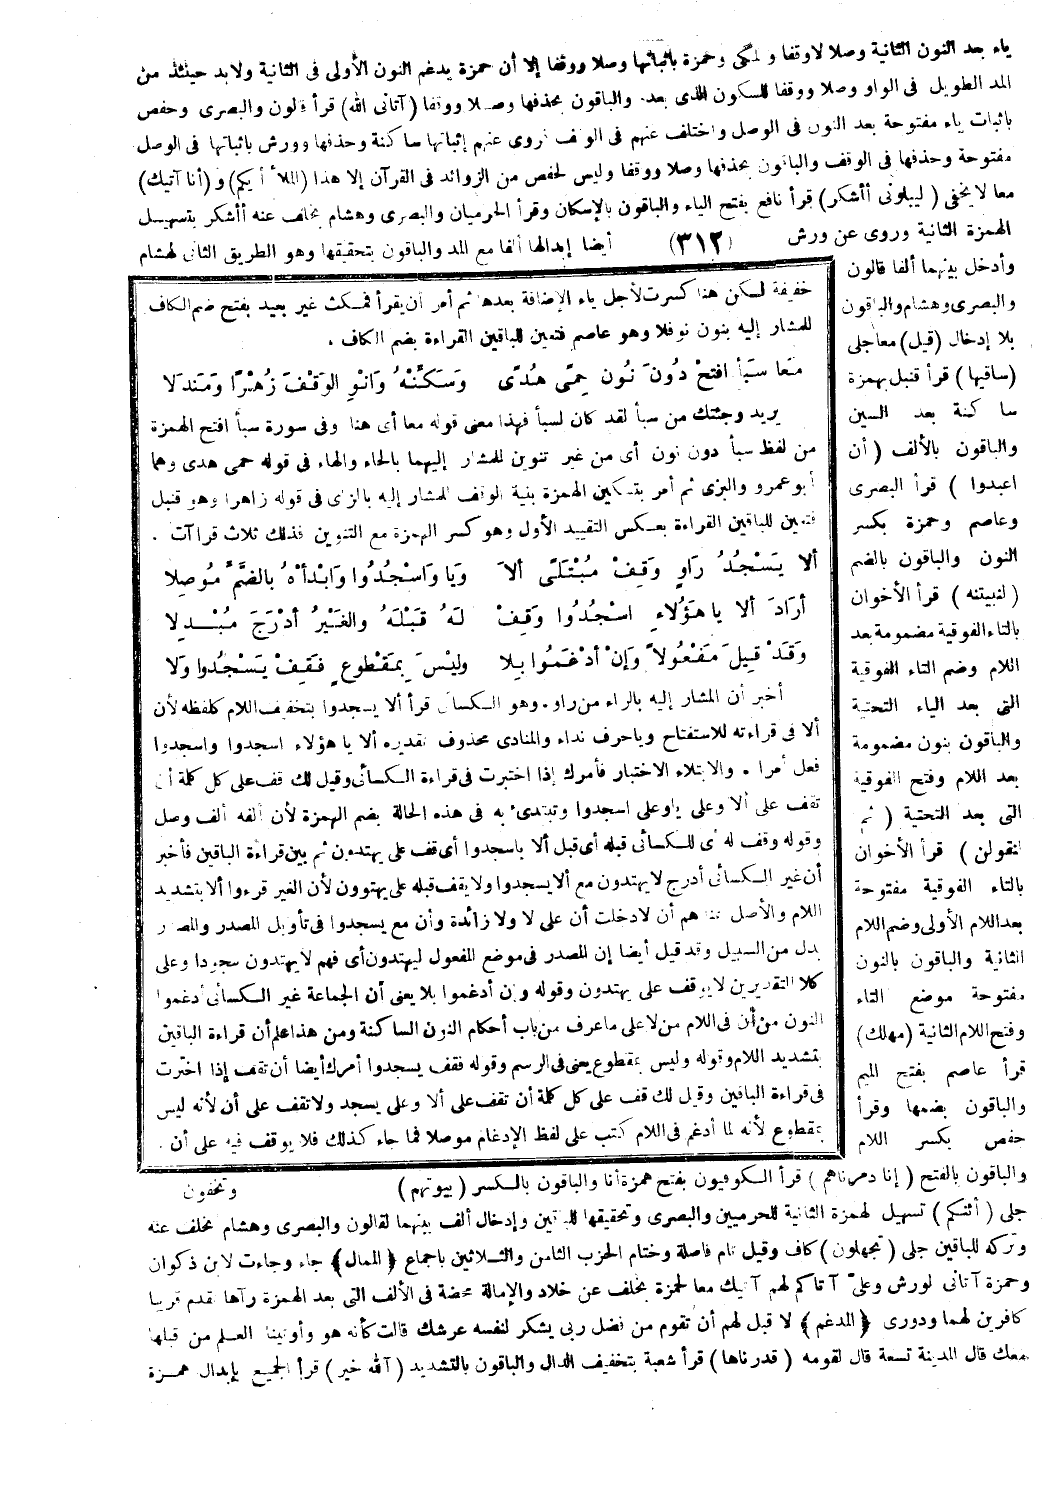 ياء بعد النون الثانية وصلا لاوقفا والمكى وحمزة باثباتها وصلا ووقفا إلا أن حمزة يدغم النون الأولى فى الثانية ولابد حينئذ من
المد الطويل فى الواو وصلا ووقفا للسكون الذى بعد. والباقون بحذفها وصلا ووقفا (آتانى الله) قرأ قالون والبصرى وحفص
باثبات ياء مفتوحة بعد النون فى الوصل واختلف عنهم فى الوقف فروى عنهم إثباتها ساكنة وحذفها وورش باثباتها فى الوصل
مفتوحة وحذفها فى الوقف والباقون بحذفها وصلا ووقفا وليس لحفص من الزوائد فى القرآن إلا هذا (الملأ أيكم) و (أنا آتيك)
معا لايخفى (ليبلونى أأشكر) قرأ نافع بفتح الياء والباقون بالإسكان وقرأ الحرميان والبصرى وهشام بخلف عنه أأشكر بتسهيل
الهمزة الثانية وروى عن ورش (٣١٢) أيضا إبدالها ألفا مع المد والباقون بتحقيقها وهو الطريق الثانى لهشام
وأدخل بينهما ألفا قالون
والبصرى وهشام والباقون
بلا إدخال (قيل) معا جلى
(ساقيها) قرأ قنبل بهمزة
ساكنة بعد السين
والباقون بالألف (أن
اعبدوا) قرأ البصرى
وعاصم وحمزة بكسر
النون والباقون بالضم
(لنبيتنه) قرأ الأخوان
بالتاء الفوقية مضمومة بعد
اللام وضم التاء الفوقية
التى بعد الياء التحتية
والباقون بنون مضمومة
بعد اللام وفتح الفوقية
التى بعد التحتية (ثم
لنقولن) قرأ الأخوان
بالتاء الفوقية مفتوحة
بعد اللام الأولى وضم اللام
الثانية والباقون بالنون
مفتوحة موضع التاء
وفتح اللام الثانية (مهلك)
قرأ عاصم بفتح الميم
والباقون بضمها وقرأ
حفص بكسر اللام
خفيفة لكن هنا كسرت لأجل ياء الإضافة بعدها ثم أمر أن يقرأ فمكث غير بعيد بفتح ضم الكاف
للمشار إليه بنون نوفلا وهو عاصم فتعين للباقين القراءة بضم الكاف .
مَعَا سَبَأَ افتحْ دُونَ نُون حِمًى هُدًى وَسَكِّنْهُ وَانْوِ الوَقْفَ زُهْرًا وَمَندَلَا
يريد وجئتك من سبأ لقد كان لسبأ فهذا معنى قوله معا أى هنا وفى سورة سبأ افتح الهمزة
من لفظ سبأ دون نون أى من غير تنوين للمشار إليهما بالحاء والهاء فى قوله حمى هدى وهما
أبو عمرو والبزى ثم أمر بتسكين الهمزة بنية الوقف للمشار إليه بالزاى فى قوله زاهرا وهو قنبل
فتعين للباقين القراءة بعكس التقييد الأول وهو كسر الهمزة مع التنوين فذلك ثلاث قراآت .
ألا يَسْجُدُ رَاوٍ وَقِفْ مُبْتَلًى ألاَ وَيا وَاسْجُدُوا وَابْدَأْهُ بالضَّمِّ مُوصِلا
أرَادَ ألا يا هَؤُلاءِ اسْجُدُوا وَقِفْ لَهُ قَبْلَهُ والغَيْرُ أدْرَجَ مُبْدِلا
وَقَدْ قِيلَ مَفْعُولاً وَإنْ أدْغَمُوا بِلا وليْسَ بِمَقْطُوعٍ فَقِفْ يَسْجُدُوا وَلا
أخبر أن المشار إليه بالراء من راو. وهو الكسائى قرأ ألا يسجدوا بتخفيف اللام كلفظه لأن
ألا فى قراءته للاستفتاح ويا حرف نداء والمنادى محذوف تقديره ألا يا هؤلاء اسجدوا واسجدوا
فعل أمر . والابتلاء الاختبار فأمرك إذا اختبرت فى قراءة الكسائى وقيل لك قف على كل كلمة أن
تقف على ألا وعلى يا وعلى اسجدوا وتبتدئ به فى هذه الحالة بضم الهمزة لأن ألفه ألف وصل
وقوله وقف له أى للكسائى قبله أى قبل ألا ياسجدوا أى قف على يهتدون ثم بين قراءة الباقين فأخبر
أن غير الكسائى أدرج لايهتدون مع ألا يسجدوا ولا يقف قبله على يهتدون لأن الغير قرءوا ألا بتشديد
اللام والأصل عندهم أن لادخلت أن على لا ولا زائدة وأن مع يسجدوا فى تأويل المصدر والمصدر
بدل من السبيل وقد قيل أيضا إن المصدر فى موضع المفعول ليهتدون أى فهم لايهتدون سجودا وعلى
كلا التقديرين لايوقف على يهتدون وقوله وإن أدغموا بلا يعنى أن الجماعة غير الكسائى أدغموا
النون من أن فى اللام من لا على ما عرف من باب أحكام النون الساكنة ومن هذا علم أن قراءة الباقين
بتشديد اللام وقوله وليس بمقطوع يعنى فى الرسم وقوله فقف يسجدوا أمرك أيضا أن تقف إذا اختبرت
فى قراءة الباقين وقيل لك قف على كل كلمة أن تقف على ألا وعلى يسجد ولا تقف على أن لأنه ليس
بمقطوع لأنه لما أدغم فى اللام كتب على لفظ الإدغام موصلا فما جاء كذلك فلا يوقف فيه على أن .
والباقون بالفتح (إنا دمرناهم) قرأ الكوفيون بفتح همزة أنا والباقون بالكسر (بيوتهم) وتخفون
جلى (أئنكم) تسهيل لهمزة الثانية للحرميين والبصرى وتحقيقها للباقين وإدخال ألف بينهما لقالون والبصرى وهشام بخلف عنه
وتركه للباقين جلى (تجهلون) كاف وقيل تام فاصلة وختام الحزب الثامن والثلاثين باجماع ﴿الممال﴾ جاء وجاءت لابن ذكوان
وحمزة آتانى لورش وعلىّ آتاكم لهم آتيك معا لحمزة بخلف عن خلاد والإمالة محضة فى الألف التى بعد الهمزة رآها تقدم قريبا
كافرين لهما ودورى ﴿المدغم﴾ لا قبل لهم أن تقوم من فضل ربى يشكر لنفسه عرشك قالت كأنه هو وأوتينا العلم من قبلها
معك قال المدينة تسعة قال لقومه (قدرناها) قرأ شعبة بتخفيف الدال والباقون بالتشديد (آلله خير) قرأ الجميع بإبدال همزة